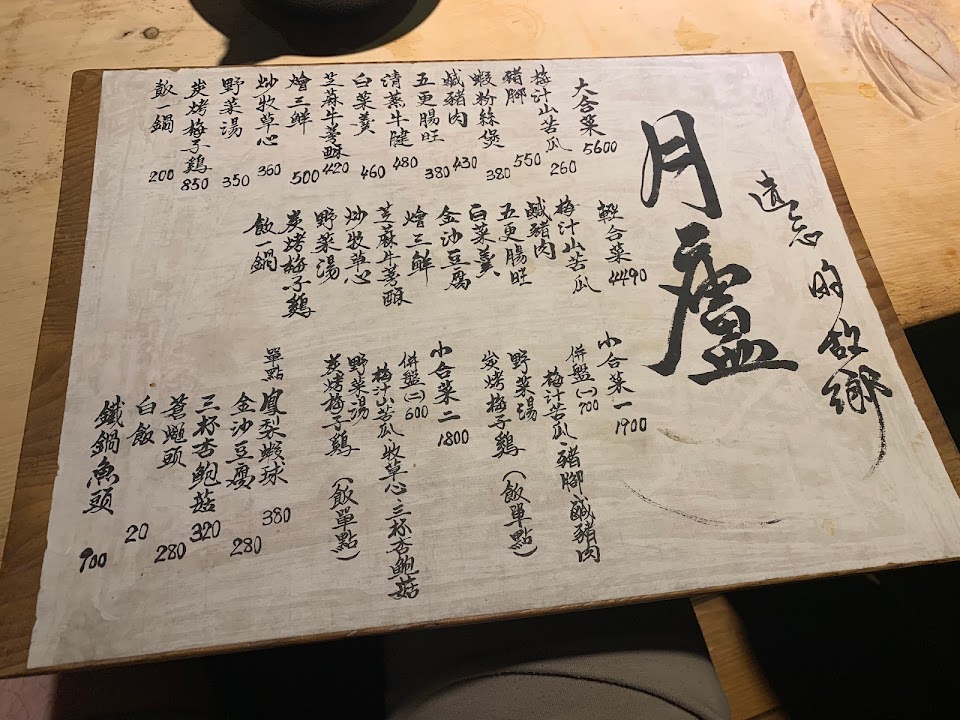 遺忘的故鄉
月廬
大合菜 5600
梅汁山苦瓜 260
豬腳 550
蝦粉絲煲 380
鹹豬肉 430
五更腸旺 380
清蒸牛腱 480
白菜羹 460
芝麻牛蒡酥 420
燴三鮮 500
炒牧草心 360
野菜湯 350
炭烤梅子鷄 850
飯一鍋 200
輕合菜 4490
梅汁山苦瓜
鹹豬肉
五更腸旺
白菜羹
金沙豆腐
燴三鮮
芝麻牛蒡酥
炒牧草心
野菜湯
炭烤梅子鷄
飯一鍋
小合菜一 1900
併盤(一) 700
梅汁苦瓜、豬腳、鹹豬肉
野菜湯
炭烤梅子鷄 (飯單點)
小合菜二 1800
併盤(二) 600
梅汁山苦瓜、牧草心、三杯杏鮑菇
野菜湯
炭烤梅子鷄 (飯單點)
單點
鳳梨蝦球 380
金沙豆腐 280
三杯杏鮑菇 320
蒼蠅頭 280
白飯 20
鐵鍋魚頭 900